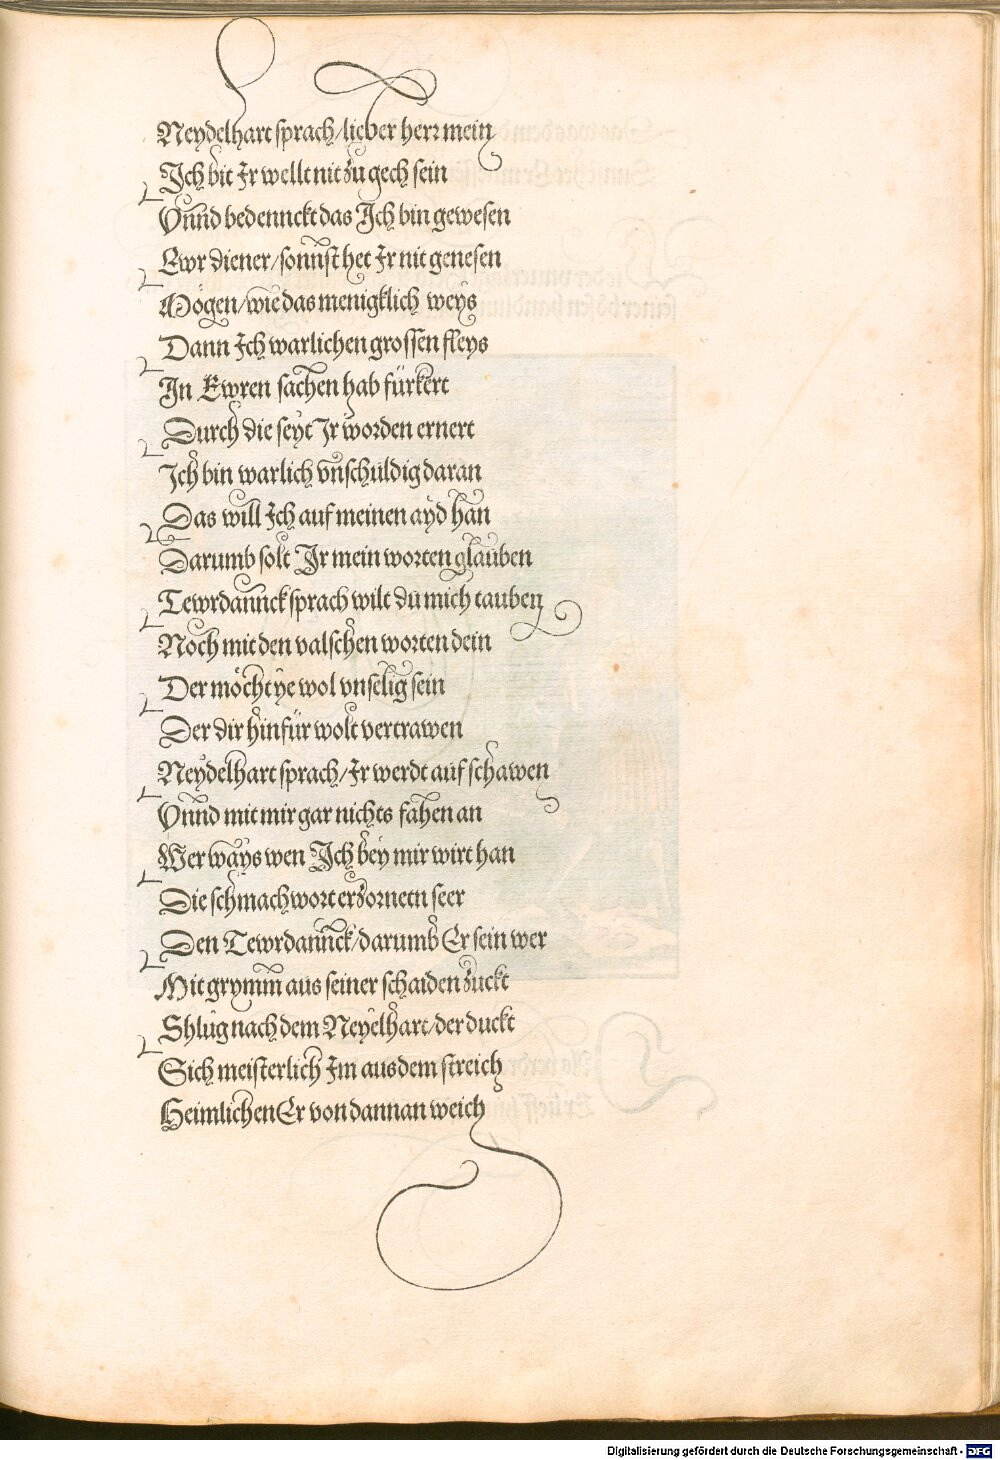 Neydelhart sprach/lieber herr mein
Ich bit Ir wellt nit zu gech sein
Vnnd bedennckt das Ich bin gewesen
Ewr diener/sonnst het Ir nit genesen
Mögen/wie das menigklich weys
Dann Ich warlichen grossen fleys
In Ewren sachen hab fürkert
Durch die seyt Ir worden ernert
Ich bin warlich vnschuldig daran
Das will Ich auf meinen ayd han
Darumb solt Ir mein worten glauben
Tewrdannck sprach wilt du mich tauben
Noch mit den valschen worten dein
Der möcht ye wol vnselig sein
Der dir hinfür wolt vertrawen
Neydelhart sprach/Ir werdt auf schawen
Vnnd mit mir gar nichts fahen an
Wer ways wen Ich bey mir wirt han
Die schmachwort erzornetn seer
Den Tewrdannck/darumb Er sein wer
Mit grymm aus seiner schaiden zuckt
Shlug nach dem Neyelhart/der duckt
Sich meisterlich Im aus dem streich
Heimlichen Er von dannan weich
Digitalisierung gefördert durch die Deutsche Forschungsgemeinschaft - DFG